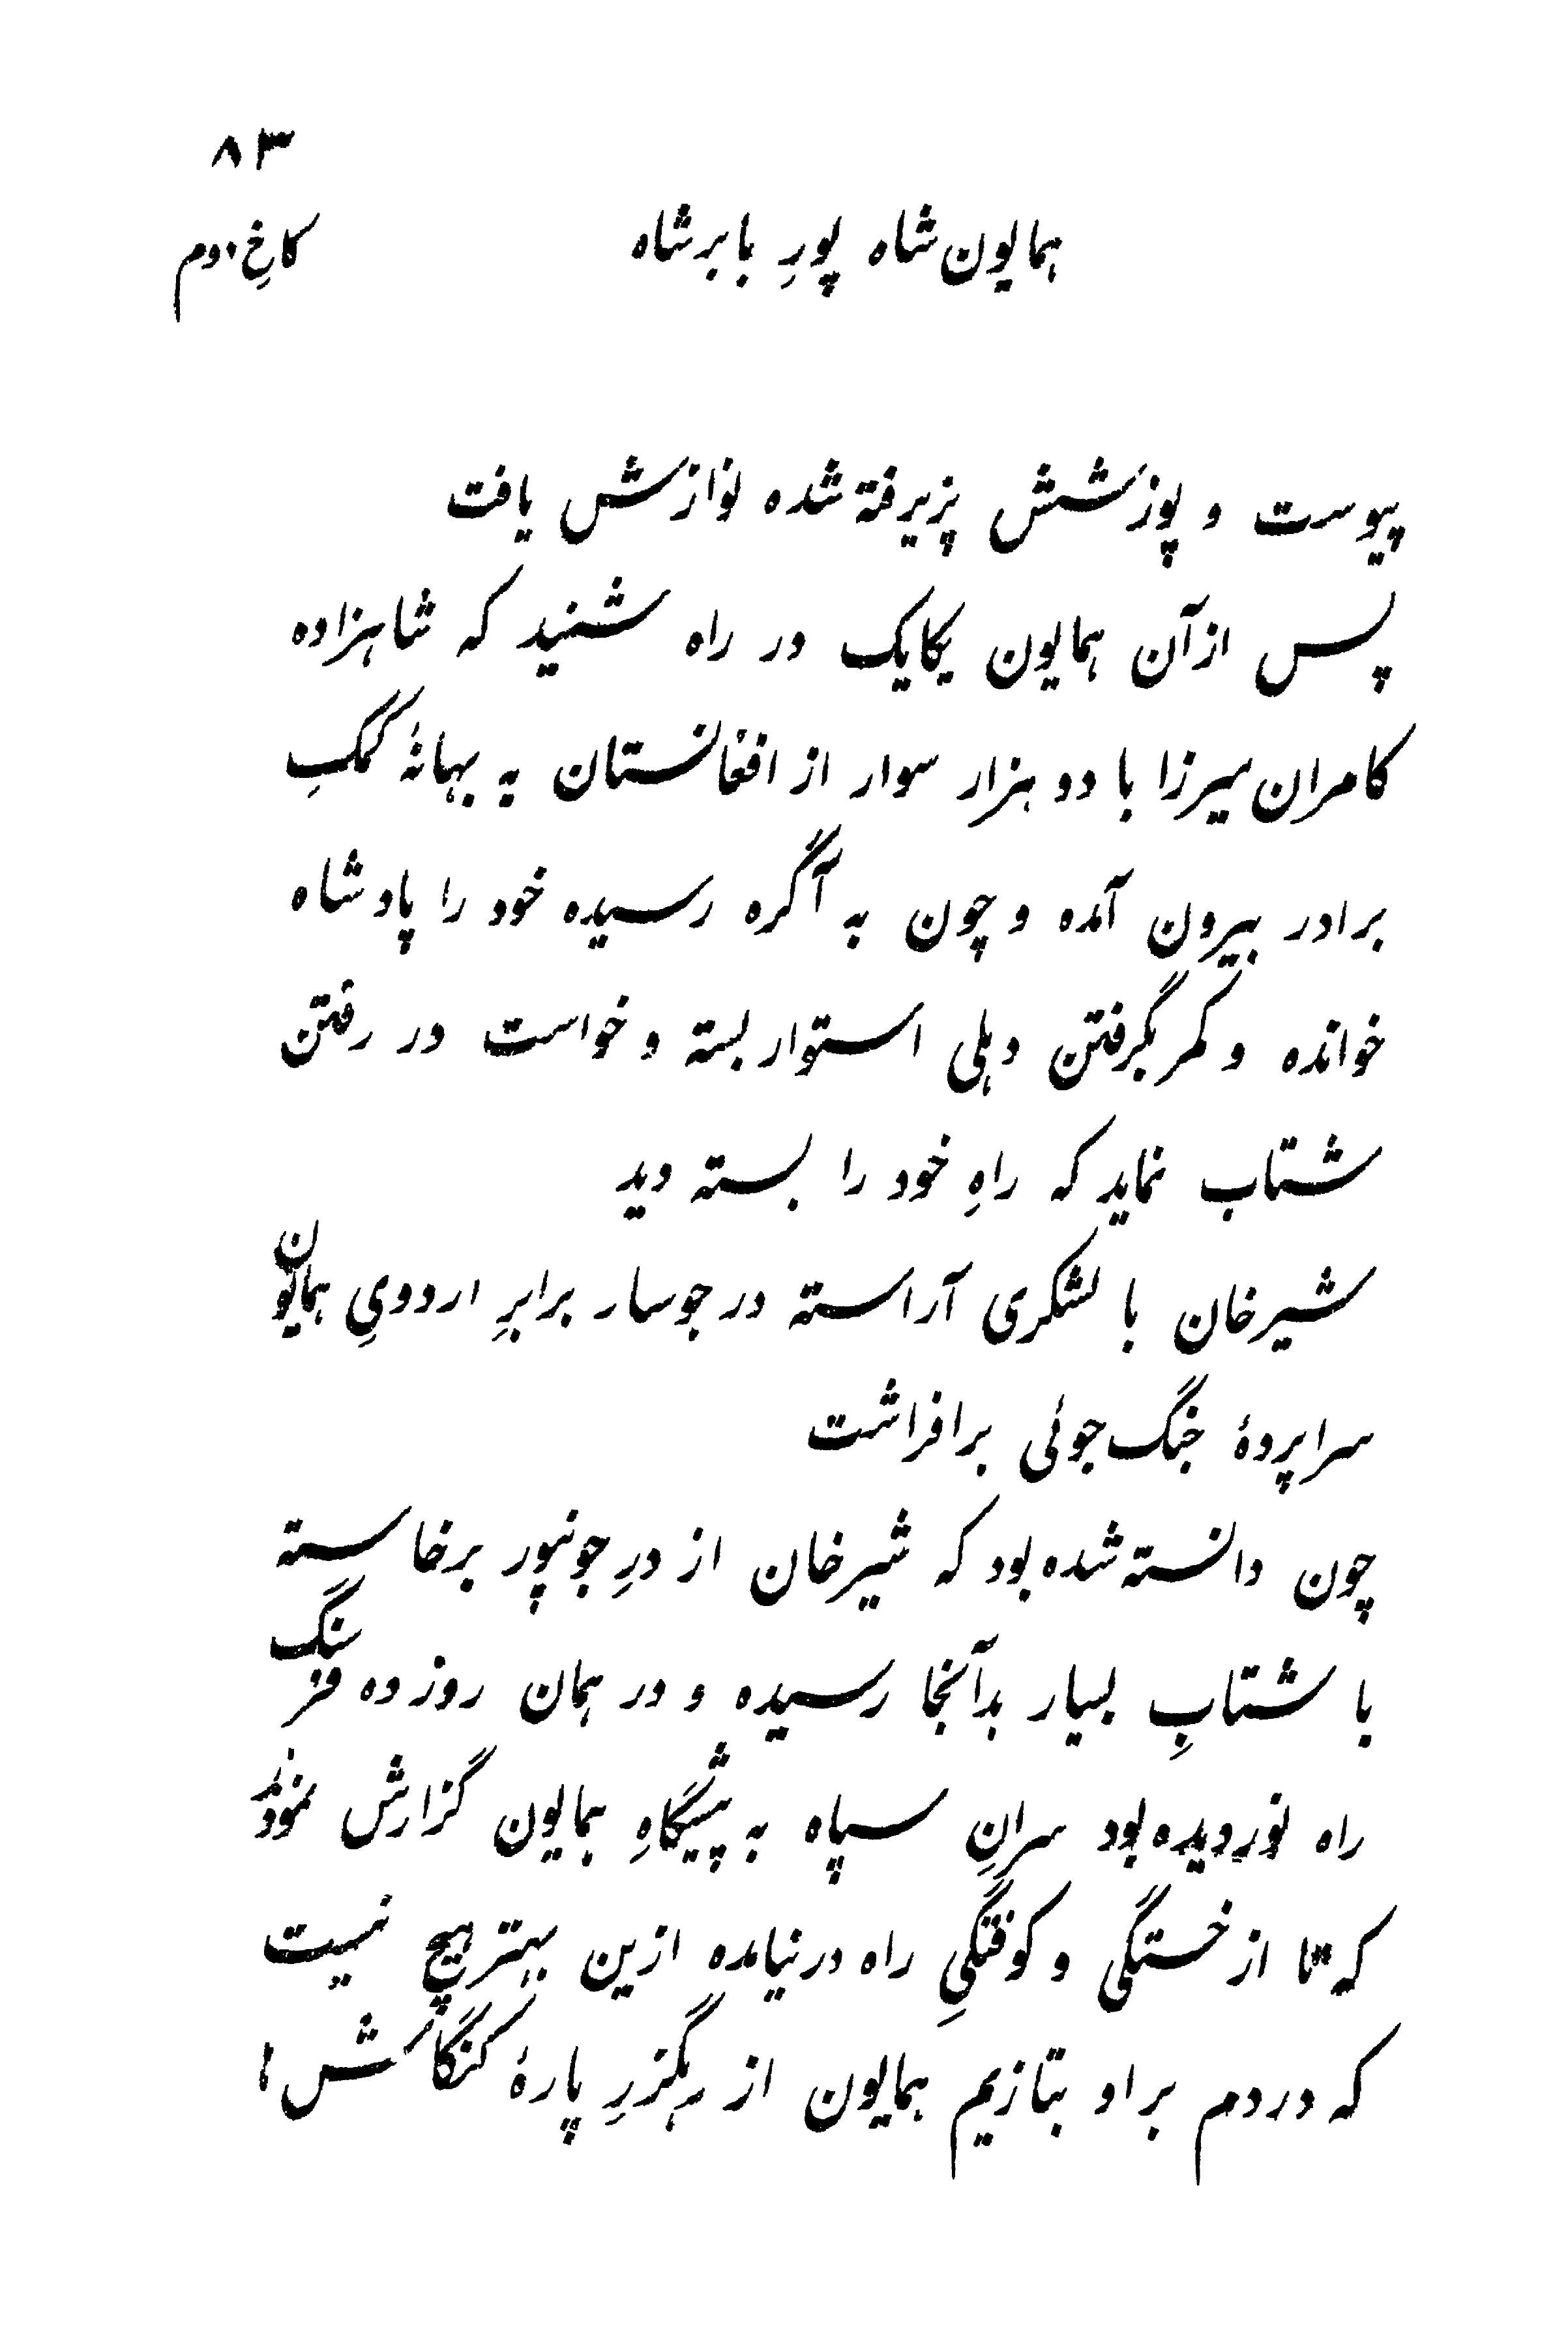 ۸۳
همایون شاه پورِ بابر شاه
کاخِ دوم
پیوست و پوزشش پزیرفته شده نوازش یافت
پس از آن همایون یکایک در راه شنید که شاهزاده
کامران میرزا با دو هزار سوار از افغانستان به بهانهٔ کمکِ
برادر بیرون آمده و چون به آگره رسیده خود را پادشاه
خوانده و کمر بگرفتن دهلی استوار بسته و خواست در رفتن
شتاب نماید که راهِ خود را بسته دید
شیرخان با لشکری آراسته در جوسار برابرِ اردویِ همایون
سراپردهٔ جنگ جوئی برافراشت
چون دانسته شده بود که شیرخان از درِ جونپور برخاسته
با شتابِ بسیار بدآنجا رسیده و در همان روز ده فرسنگ
راه نوردیده بود سرانِ سپاه به پیشگاهِ همایون گزارش نمودند
که تا از خستگی و کوفتگیِ راه در نیامده ازین بهتر هیچ نیست
که در دم بر او بتازیم همایون از رهگزرِ پارهٔ کنگاش ها